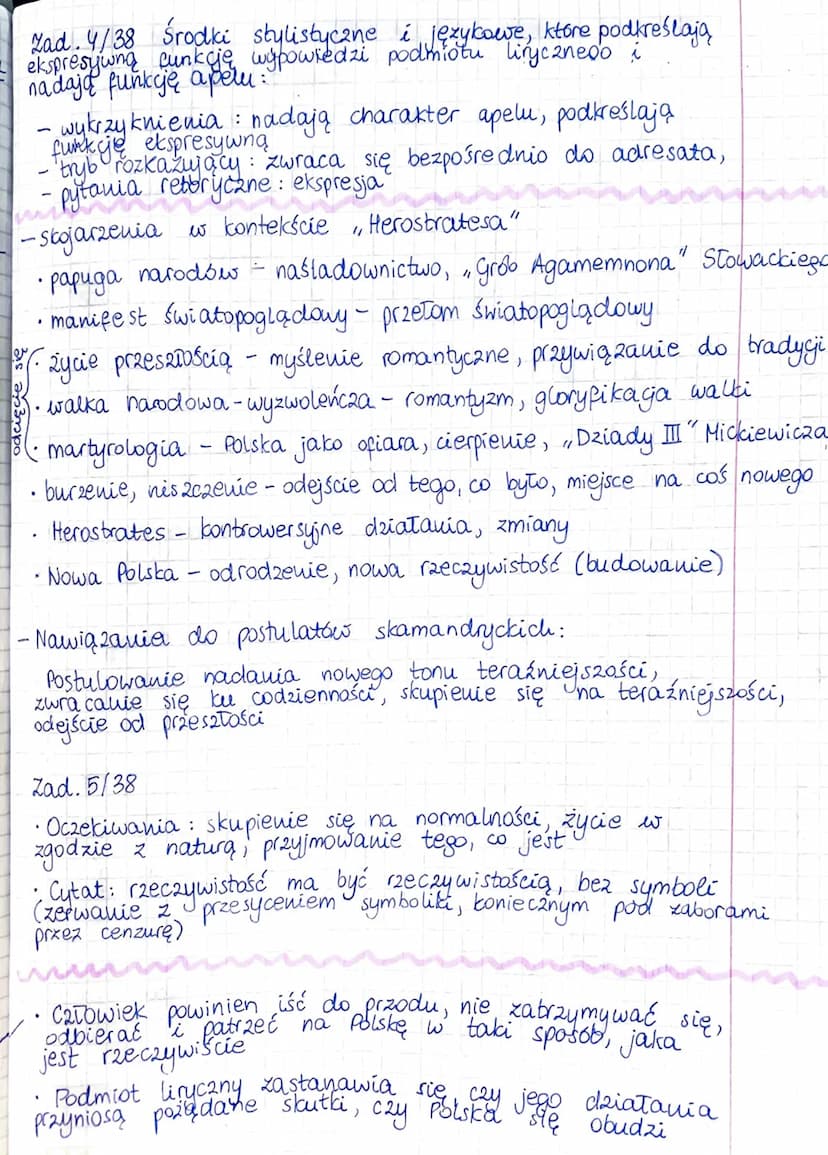 Zad. 4/38 Środki stylistyczne i językowe, które podkreślają
ekspresywną funkcję wypowiedzi podmiotu lirycznego i
nadają funkcję apelu:
- wykrzyknienia : nadają charakter apelu, podkreślają
funkcję ekspresywną
- tryb rozkazujący : zwraca się bezpośrednio do adresata,
- pytania retoryczne : ekspresja
- skojarzenia w kontekście „Herostratesa"
· papuga narodów - naśladownictwo, „Grób Agamemnona" Słowackiego
· manifest światopoglądowy - przełom światopoglądowy
odcięcie się
· życie przeszłością - myślenie romantyczne, przywiązanie do tradycji
· walka narodowa-wyzwoleńcza - romantyzm, gloryfikacja walki
· martyrologia - Polska jako ofiara, cierpienie, „Dziady III" Mickiewicza
· burzenie, niszczenie - odejście od tego, co było, miejsce na coś nowego
· Herostrates - kontrowersyjne działania, zmiany
· Nowa Polska - odrodzenie, nowa rzeczywistość (budowanie)
- Nawiązania do postulatów skamandryckich:
Postulowanie nadania nowego tonu teraźniejszości,
zwracanie się ku codzienności, skupienie się na teraźniejszości,
odejście od przeszłości
Zad. 5/38
· Oczekiwania : skupienie się na normalności, życie w
zgodzie z naturą, przyjmowanie tego, co jest
· Cytat: rzeczywistość ma być rzeczywistością, bez symboli
(zerwanie z przesyceniem symboliki, koniecznym pod zaborami
przez cenzurę)
· Człowiek powinien iść do przodu, nie zatrzymywać się,
odbierać i patrzeć na Polskę w taki sposób, jaka
jest rzeczywiście
· Podmiot liryczny zastanawia się, czy jego działania
przyniosą pożądane skutki, czy Polska się obudzi